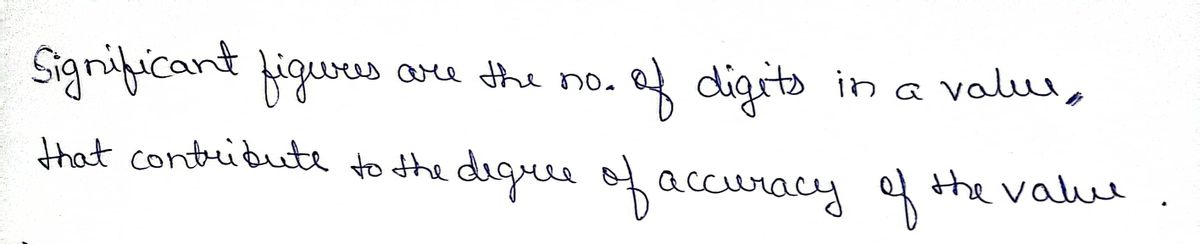 Significant figures are the no. of digits in a value,
that contribute to the degree of accuracy of the value .